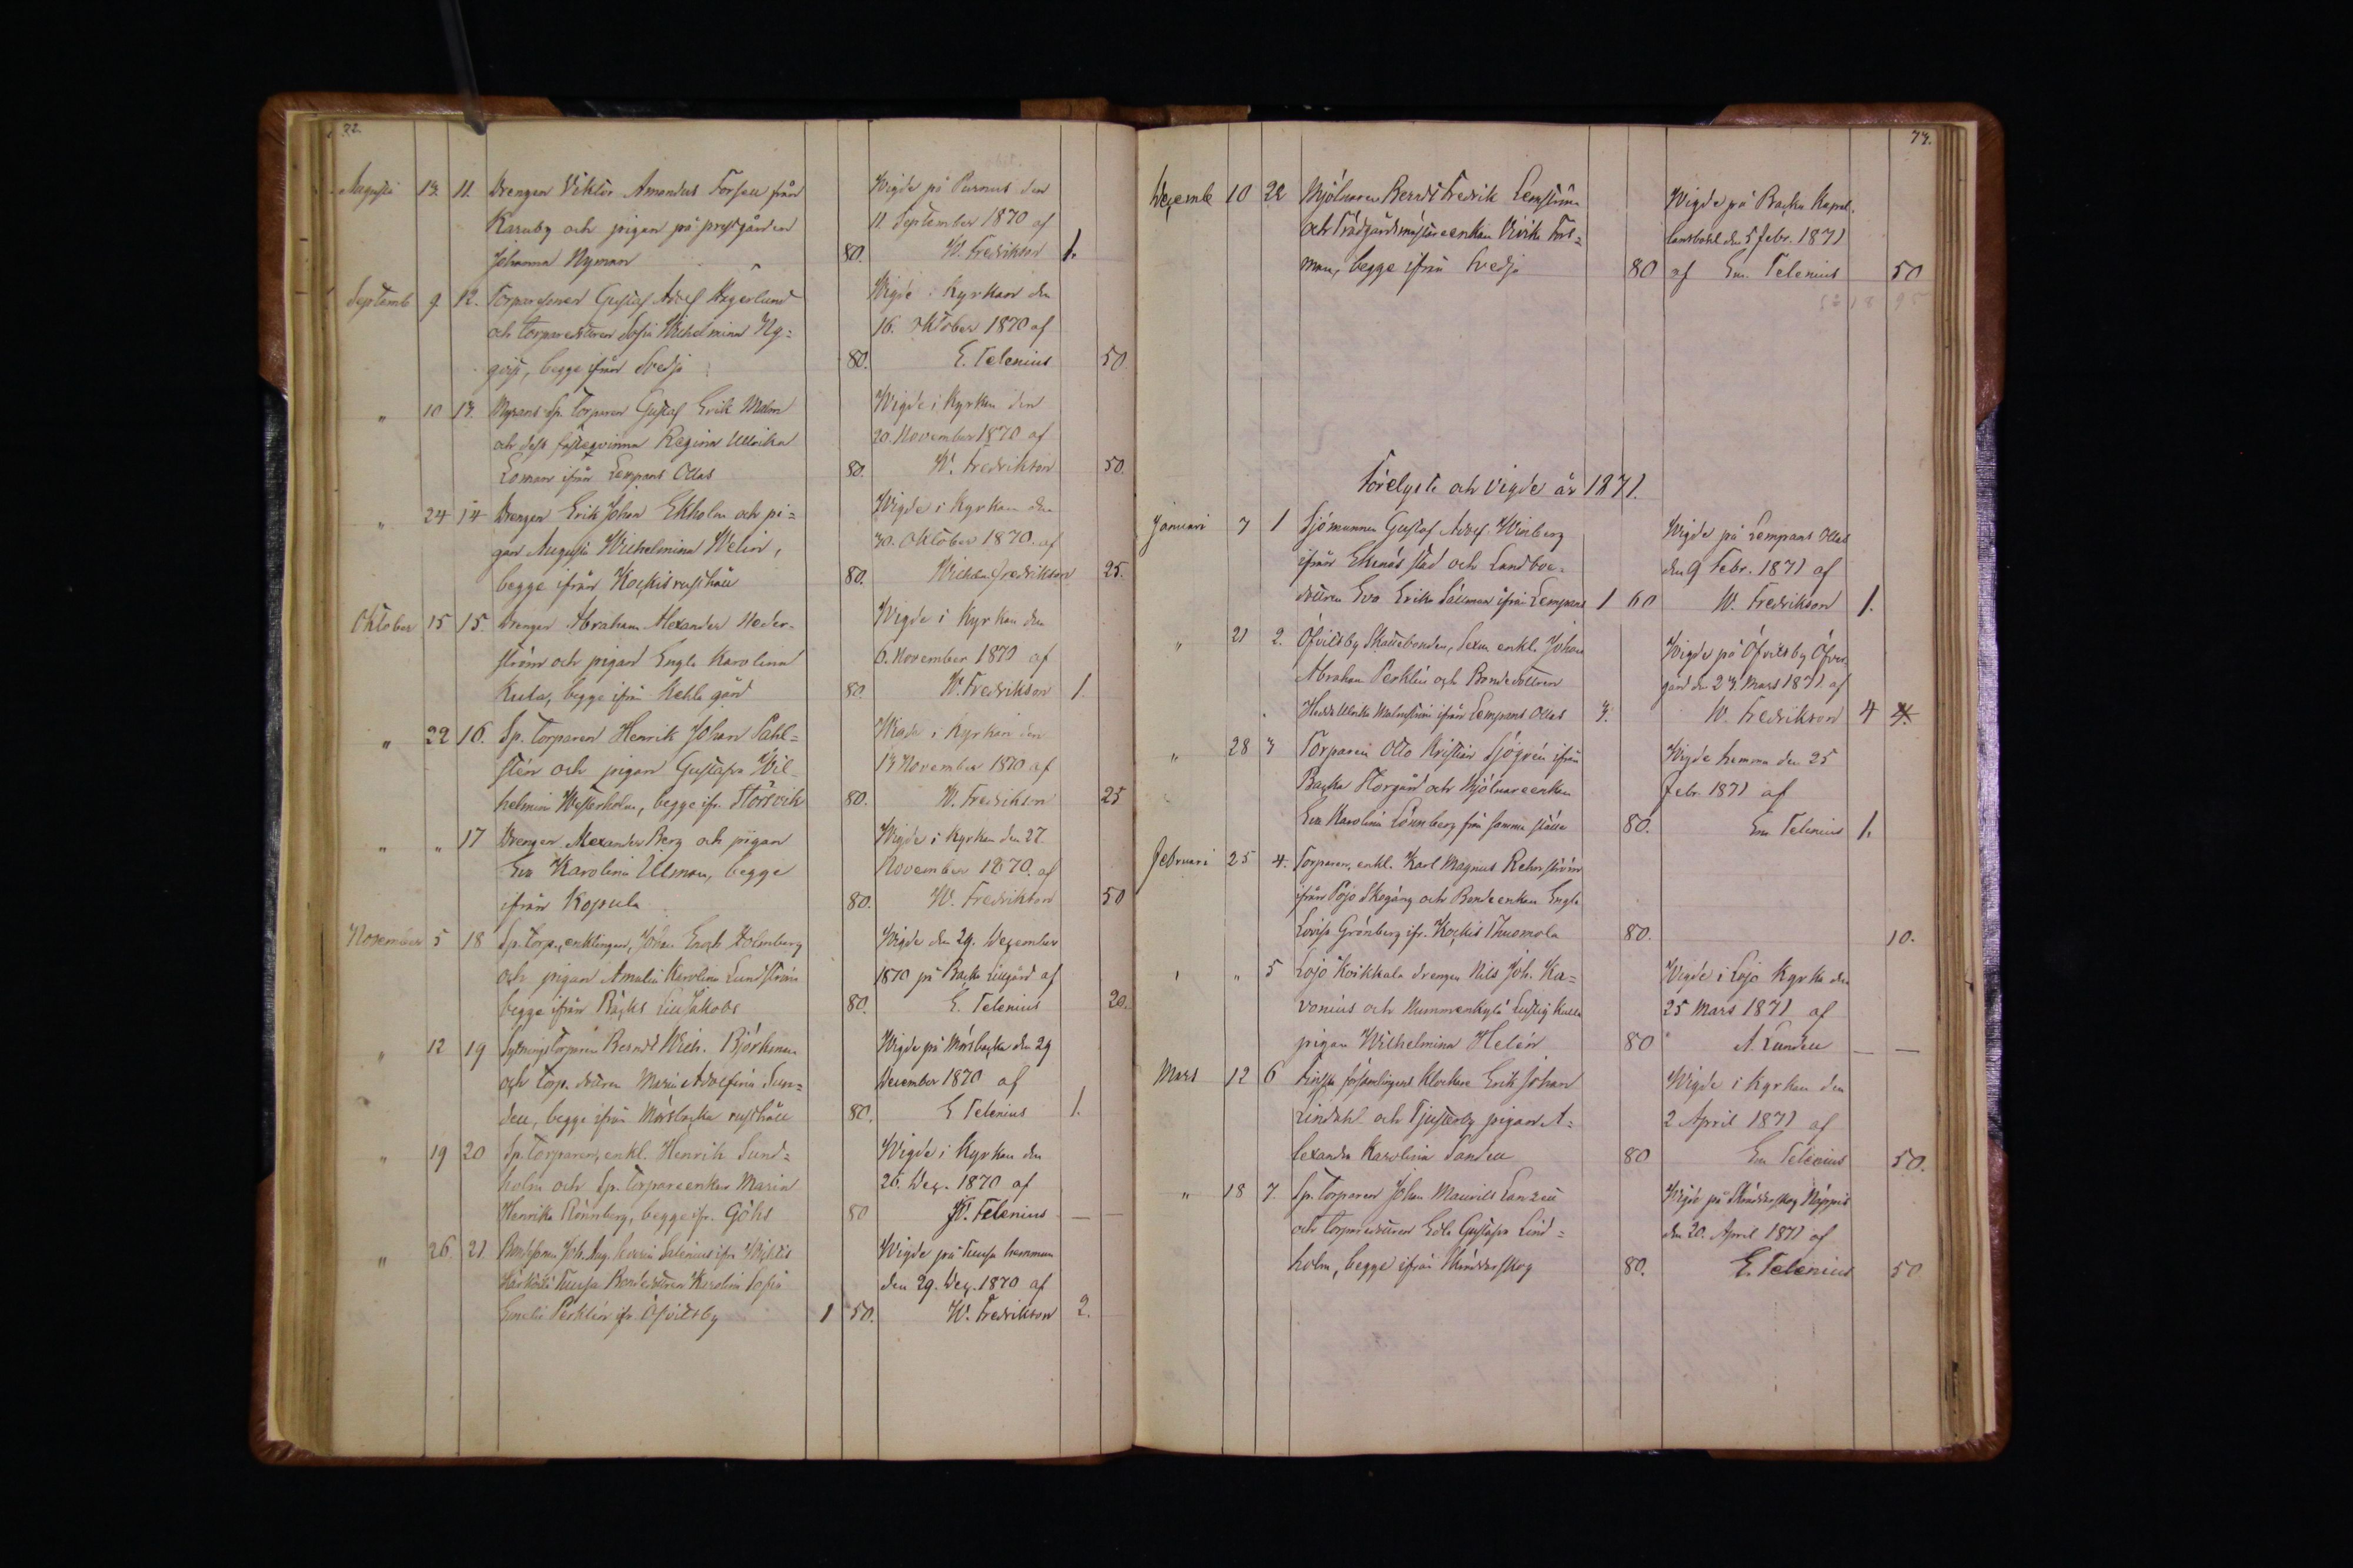 72.
Augusti 13. 11. Drengen Viktor Amandus Forsell från Wigde på Purnus den
Karuby och pigan på prestgården 11 September 1870 af
Johanna Nyman 80. W. Fredrikson 1.
Septemb 9. 12. Torparesonen Gustaf Adolf Hägerlund Wigde i Kyrkan den
och torparedottren Sofia Wilhelmina Ny= 16. Oktober 1870 af
qvist, begge ifrån Svedja 80. E. Telenius 50
" 10 13. Sp. Torparen Gustaf Erik Malm Wigde i Kyrkan den
och dess fästeqvinna Regina Ulrika 20. November 1870 af
Loman ifrån Lempans Ollas 80. W. Fredrikson 50.
" 24 14 Drengen Erik Johan Ekholm och pi= Wigde i Kyrkan den
gan Augusta Wilhelmina Welin, 30. Oktober 1870. af
begge ifrån Kockis rusthåll 80. Wilhelm Fredrikson 25.
Oktober 15 15. Drengen Abraham Alexander Heder- Wigde i Kyrkan den
ström och pigan Engla Karolina 6. November 1870 af
Kula, begge ifrån gård 80. W. Fredrikson 1.
" 22 16. Sp. torparen Henrik Johan Sahl= Wigde i Kyrkan den
stén och pigan Gustafva Wil- 13 November 1870 af
helmina Westerholm, begge ifr. Storsvik 80. W. Fredrikson 25
" " 17 Drengen Alexander Berg och pigan Wigde i Kyrkan den 27.
Eva Karolina Ulman, begge November 1870. af
ifrån Kopula 80. W. Fredrikson 50
November 5 18 Sp. torp., enklingen, Johan Enoch Holmberg Wigde den 29. December
och pigan Amalia Karolina Lundström 1870 på Backa Lillgård af
begge ifrån Bäcks Lill Jakobs 80. E. Telenius 20.
" 12 19 Sytningstorparen Berndt Wilh. Björkman Wigde på Mörsbacka den 29
och torp. dottren Maria Adolfina Sun= December 1870 af
dell, begge ifrån Mörsbacka rusthåll 80. E Telenius 1.
" 19 20 Sp. Torparen, enkl. Henrik Sund= Wigde i Kyrkan den
holm och Sp. Torpareenkan Maria 26. Dec. 1870 af
Henrika Rönnberg, begge ifr. Göhs 80 W. Telenius — —
" 26. 21. Joh. Aug. Salenius ifr. Wichtis Wigde på hemman
Bondedottren Karolina Sofia den 29. Dec. 1870 af
Emelie Perklén ifr. Öfvitsby 1 50. W. Fredrikson 2.
73.
Decemb 10 22 Mjölnaren Berndt Fredrik Lemström Wigde på Backa Kapel-
och Trädgårdsmästareenkan Ulrika Fors= lansbohl den 5 febr. 1871
man, begge ifrån Svedja 80 af Em. Telenius 50
18 95
Förelyste och vigde år 1871.
Januari 7 1 Sjömannen Gustaf Adolf Winberg Wigde på Lempans Ollas
ifrån Ekenäs stad och Landboe- den 9 Febr. 1871 af
dottren Eva Erika Sällman ifrån Lempans 1 60 W. Fredrikson 1.
" 21 2. Öfvitsby Skattebonden, enkl. Johan Wigde på Öfvitsby Öfver
Abraham Perklén och Bondedottren gård den 23. Mars 1871. af
Hedda Ulrika Malmström ifrån Lempans Ollas 3. W. Fredrikson 4 4.
" 28 3 Torparen Otto Kristian Sjögrén ifrån Wigde hemma den 25
Backa Storgård och Mjölnareenkan febr. 1871 af
Eva Karolina Lönnberg från samma ställe 80. Em Telenius 1.
Februari 25 4. Torparen, enkl. Karl Magnus Rehnström
ifrån Pojo Skogäng och Bondeenkan Engla
Lovisa Grönberg ifr. Kockis Thuomola 80. 10.
" " 5 Lojo Koikkala drengen Nils Joh. Ka= Wigde i Lojo Kyrka den
vonius och Nummenkylä Lustigkulla 25 Mars 1871 af
pigan Wilhelmina Helén 80 A. Lundell — —
Mars 12 6 Finska församlingens klockare Erik Johan Wigde i Kyrkan den
Lindahl och Tjusterby pigan A= 2 April 1871 af
lexandra Karolina Sandell 80 Em Telenius 50.
" 18 7. Sp. Torparen Johan Maurits Lanzell Wigde på Skräddarskog Näppis
och torparedottren Edla Gustafva Lind= den 20. April 1871 af
holm, begge ifrån Skräddarskog 80. E. Telenius 50